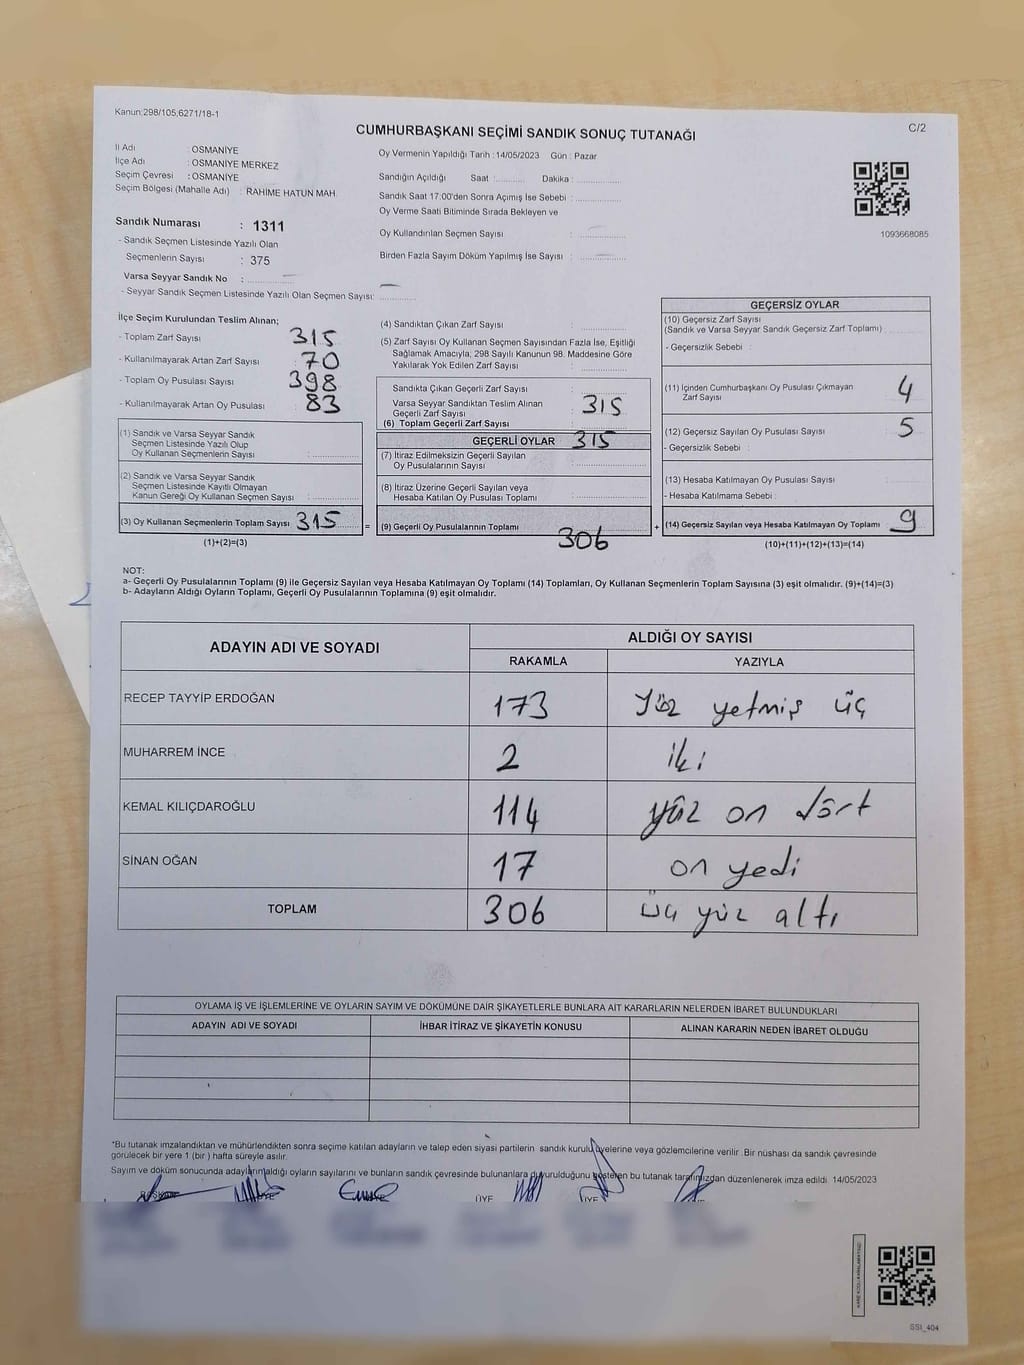 Kanun:298/105,6271/18-1
C/2
CUMHURBAŞKANI SEÇİMİ SANDIK SONUÇ TUTANAĞI
İl Adı : OSMANİYE
İlçe Adı : OSMANİYE MERKEZ
Seçim Çevresi : OSMANİYE
Seçim Bölgesi (Mahalle Adı) : RAHİME HATUN MAH.
Sandık Numarası : 1311
- Sandık Seçmen Listesinde Yazılı Olan
Seçmenlerin Sayısı : 375
Varsa Seyyar Sandık No :
- Seyyar Sandık Seçmen Listesinde Yazılı Olan Seçmen Sayısı:
Oy Vermenin Yapıldığı Tarih : 14/05/2023 Gün : Pazar
Sandığın Açıldığı Saat : Dakika :
Sandık Saat 17:00'den Sonra Açımış İse Sebebi :
Oy Verme Saati Bitiminde Sırada Bekleyen ve
Oy Kullandırılan Seçmen Sayısı :
Birden Fazla Sayım Döküm Yapılmış İse Sayısı :
1093668085
İlçe Seçim Kurulundan Teslim Alınan;
- Toplam Zarf Sayısı : 315
- Kullanılmayarak Artan Zarf Sayısı : 70
- Toplam Oy Pusulası Sayısı : 398
- Kullanılmayarak Artan Oy Pusulası : 83
(1) Sandık ve Varsa Seyyar Sandık
Seçmen Listesinde Yazılı Olup
Oy Kullanan Seçmenlerin Sayısı :
(2) Sandık ve Varsa Seyyar Sandık
Seçmen Listesinde Kayıtlı Olmayan
Kanun Gereği Oy Kullanan Seçmen Sayısı :
(3) Oy Kullanan Seçmenlerin Toplam Sayısı : 315
(1)+(2)=(3)
=
(4) Sandıktan Çıkan Zarf Sayısı :
(5) Zarf Sayısı Oy Kullanan Seçmen Sayısından Fazla İse, Eşitliği
Sağlamak Amacıyla; 298 Sayılı Kanunun 98. Maddesine Göre
Yakılarak Yok Edilen Zarf Sayısı :
Sandıkta Çıkan Geçerli Zarf Sayısı :
Varsa Seyyar Sandıktan Teslim Alınan
Geçerli Zarf Sayısı : 315
(6) Toplam Geçerli Zarf Sayısı :
GEÇERLİ OYLAR 315
(7) İtiraz Edilmeksizin Geçerli Sayılan
Oy Pusulalarının Sayısı :
(8) İtiraz Üzerine Geçerli Sayılan veya
Hesaba Katılan Oy Pusulası Toplamı :
(9) Geçerli Oy Pusulalarının Toplamı : 306
+
GEÇERSİZ OYLAR
(10) Geçersiz Zarf Sayısı :
(Sandık ve Varsa Seyyar Sandık Geçersiz Zarf Toplamı)
- Geçersizlik Sebebi :
(11) İçinden Cumhurbaşkanı Oy Pusulası Çıkmayan
Zarf Sayısı : 4
(12) Geçersiz Sayılan Oy Pusulası Sayısı : 5
- Geçersizlik Sebebi :
(13) Hesaba Katılmayan Oy Pusulası Sayısı :
- Hesaba Katılmama Sebebi :
(14) Geçersiz Sayılan veya Hesaba Katılmayan Oy Toplamı : 9
(10)+(11)+(12)+(13)=(14)
NOT:
a- Geçerli Oy Pusulalarının Toplamı (9) ile Geçersiz Sayılan veya Hesaba Katılmayan Oy Toplamı (14) Toplamları, Oy Kullanan Seçmenlerin Toplam Sayısına (3) eşit olmalıdır. (9)+(14)=(3)
b- Adayların Aldığı Oyların Toplamı, Geçerli Oy Pusulalarının Toplamına (9) eşit olmalıdır.
ADAYIN ADI VE SOYADI ALDIĞI OY SAYISI
RAKAMLA YAZIYLA
RECEP TAYYİP ERDOĞAN 173 Yüz yetmiş üç
MUHARREM İNCE 2 iki
KEMAL KILIÇDAROĞLU 114 yüz on dört
SİNAN OĞAN 17 on yedi
TOPLAM 306 üç yüz altı
OYLAMA İŞ VE İŞLEMLERİNE VE OYLARIN SAYIM VE DÖKÜMÜNE DAİR ŞİKAYETLERLE BUNLARA AİT KARARLARIN NELERDEN İBARET BULUNDUKLARI
ADAYIN ADI VE SOYADI İHBAR İTİRAZ VE ŞİKAYETİN KONUSU ALINAN KARARIN NEDEN İBARET OLDUĞU
*Bu tutanak imzalandıktan ve mühürlendikten sonra seçime katılan adayların ve talep eden siyasi partilerin sandık kurulu üyelerine veya gözlemcilerine verilir. Bir nüshası da sandık çevresinde
görülecek bir yere 1 (bir ) hafta süreyle asılır.
Sayım ve döküm sonucunda adayların aldığı oyların sayılarını ve bunların sandık çevresinde bulunanlara duyurulduğunu gösteren bu tutanak tarafımızdan düzenlenerek imza edildi. 14/05/2023
BAŞKAN ÜYE ÜYE ÜYE
SSI_404